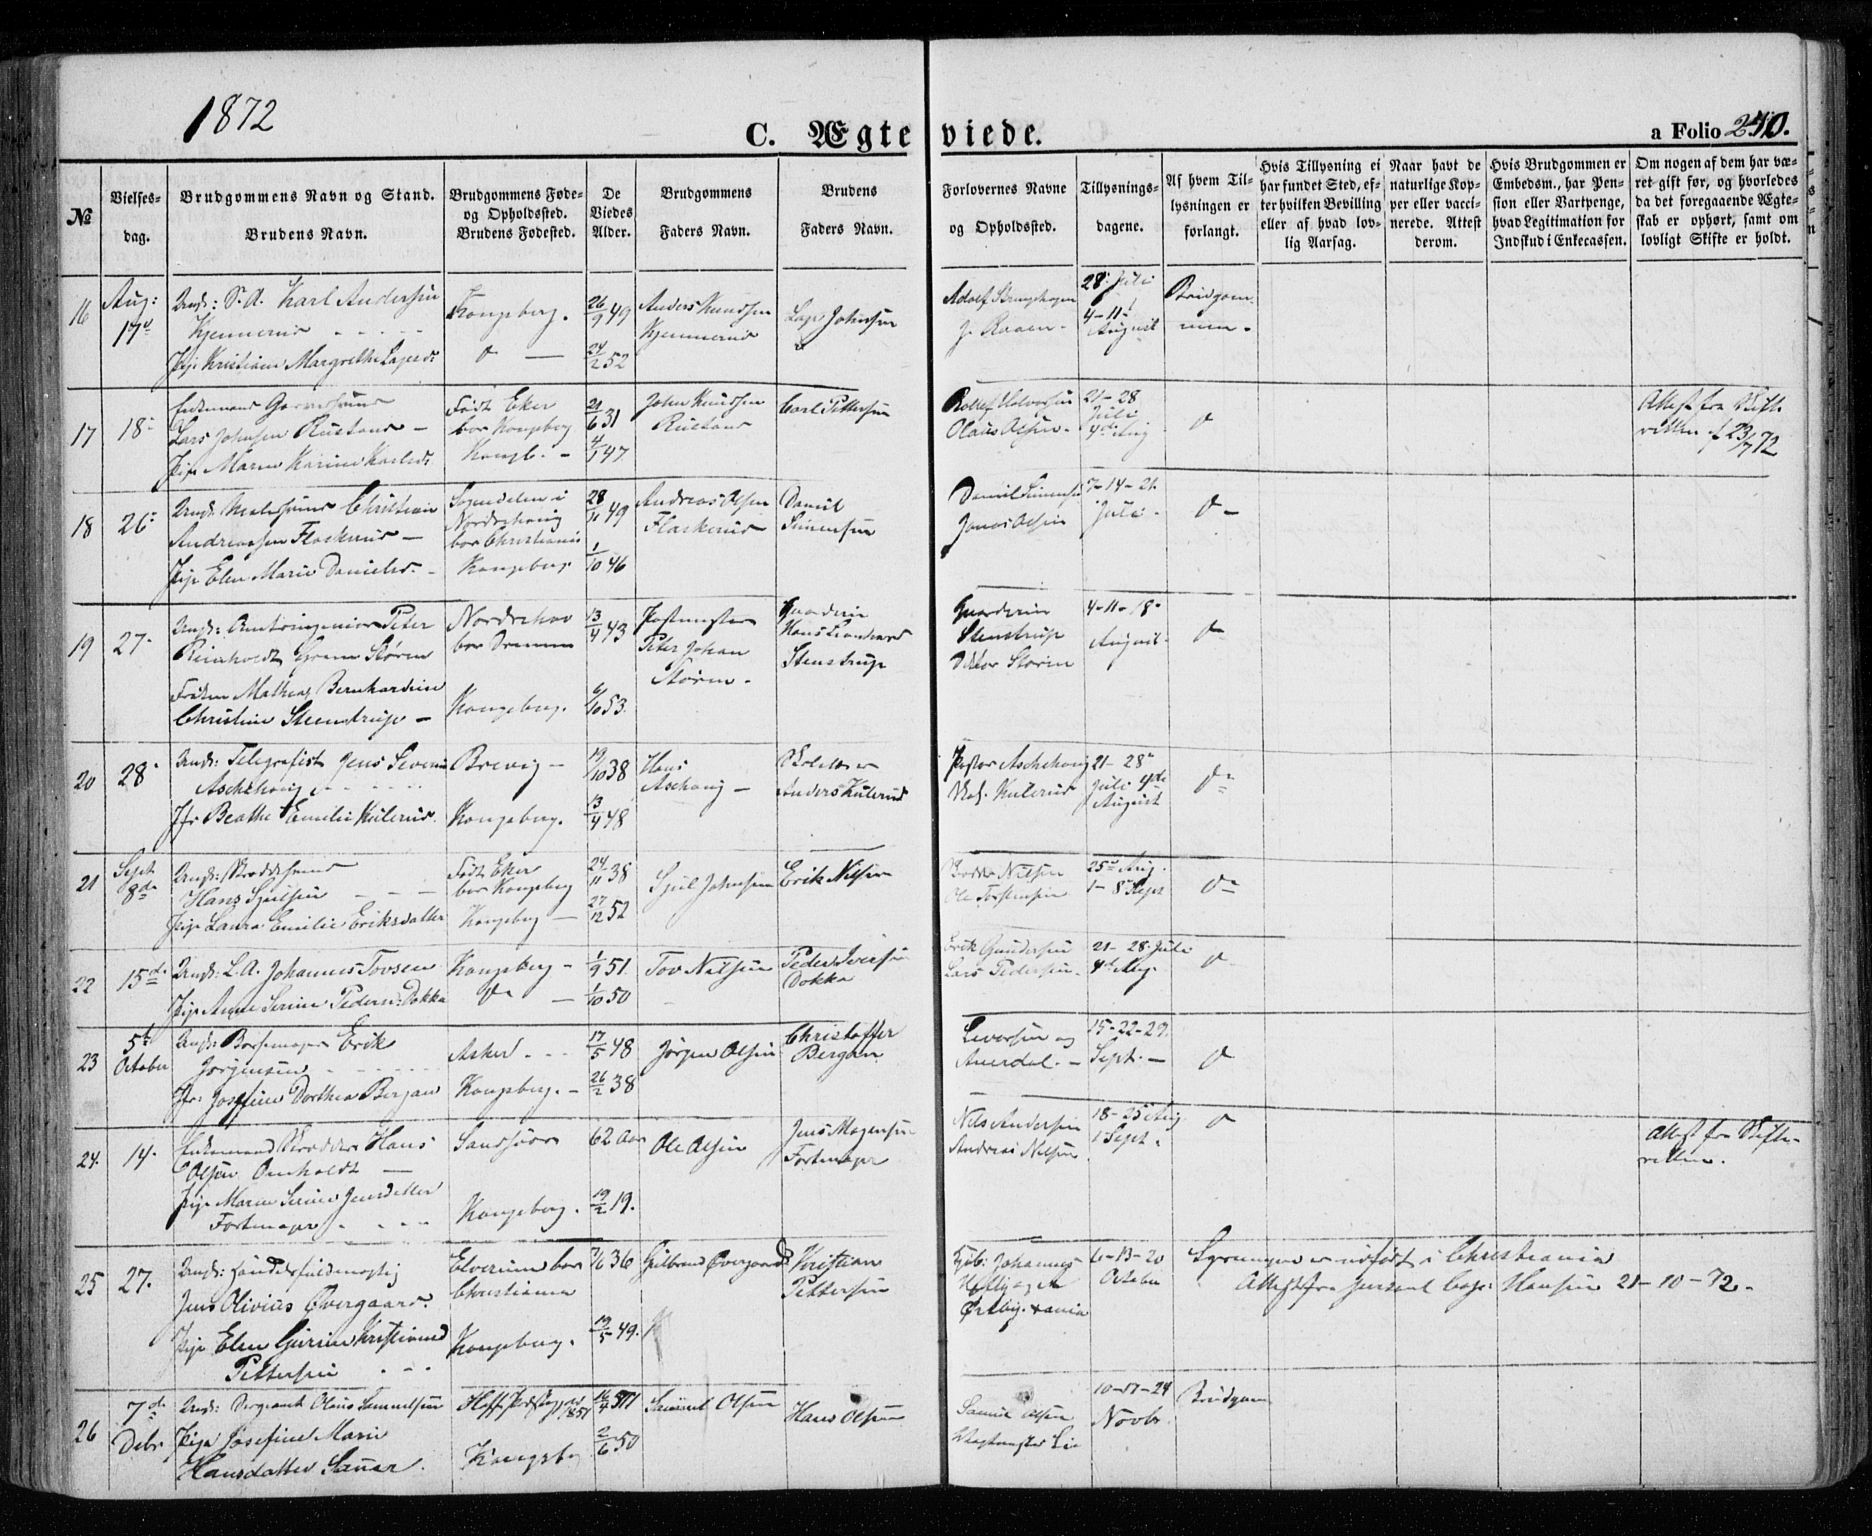 1872
C. Ægteviede.
a Folio 240.
№
Vielses-
dag.
Brudgommens Navn og Stand.
Brudens Navn.
Brudgommens Føde-
og Opholdssted.
Brudens Fødested.
De
Viedes
Alder.
Brudgommens
Faders Navn.
Brudens
Faders Navn.
Forlovernes Navne
og Opholdssted.
Tillysnings-
dagene.
Af hvem Til-
lysningen er
forlangt.
Hvis Tillysning ei
har fundet Sted, ef-
ter hvilken Bevilling
eller af hvad lov-
lig Aarsag.
Naar havt de
naturlige Kop-
per eller vacci-
nerede. Attest
derom.
Hvis Brudgommen er
Embedsm., har Pen-
sion eller Vartpenge,
hvad Legitimation for
Indskud i Enkecassen.
Om nogen af dem har væ-
ret gift før, og hvorledes
da det foregaaende Ægte-
skab er ophørt, samt om
lovligt Skifte er holdt.
16
Aug:
17d
Ungk: S. A. Karl Andersen
Kjennerud
Pige Kristiane Margrethe
Kongsberg.
26/9 49
24/2 52
Anders Knudsen
Kjennerud
Johnsen
Adolf
28 Juli
4-11
August
Brudgom-
men.
17
18
Enkemand
Lars Johnsen Rustand
Pige Maren Karine Karlsd.
Født Eker
bor Kongsberg
Kongb.
21/6 31
4/1 47
John Knudsen
Rustand
Carl Pettersen
Halvorsen
Olaus Olsen
21-28
Juli
4de Aug
Attest fra Skifte-
retten af 23/7 72
18
26
Ungk. Malersvend Christian
Andreassen Flaskerud
Pige Elen Marie Danielsd.
Sognedalen i
Norderhoug
bor Christiania
Kongsberg
28/11 49
1/10 46
Andreas Olsen
Flaskerud
Daniel
Simensen
Daniel Simensen
Jonas Olsen
7-14-21
Juli
19
27
Ungk: Amtsingeniør Peter
Reinholdt Gram Støren
Frøken Mathea Bernhardine
Christine Steenstrup
Norderhov
bor Drammen
Kongsberg.
13/4 43
6/10 53
Postmester
Peter Johan
Støren
Hans
Stenstrup
Stenstrup
Støren
4-11-18
August
20
28
Ungk: Telegrafist Jens Severin
Aschehoug
Jfr Beathe Emilie Kulerud
Brevig
Kongsberg.
19/10 38
13/4 48
Hans
Aschoug
Anders Kulerud
Pastor Aschehoug
Kulerud
21-28
Juli 4de
August
21
Sept
8de
Ungk:
Hans Sjulsen
Pige Laura Emilie Eriksdatter
Født Eker
bor Kongsberg
Kongsberg
24/11 38
27/12 52
Sjul Johnsen
Erik Nilsen
Nilsen
Ole Torstensen
25 Aug.
1-8 Sept
22
15de
Ungk: L. A. Johannes Tovsen
Pige Anne Serine Peders: Dokka
Kongsberg
1/9 51.
1/10 50
Tov Nilsen
Peder Iversen
Dokka
Erik Gundersen
Lars Pedersen
21-28 Juli
4d Aug.
23
5te
October
Ungk: Børsemager Erik
Jørgensen
Jfr: Josefine Dorthea Bergan
Asker
Kongsberg.
17/5 48
26/2 38
Jørgen Olsen
Christoffer
Bergan
Leversen og
Auerdal.
15-22-29
Sept.
24.
14.
Enkemand Hans
Olsen Omholdt
Pige Maren Serine Jensdatter
Fortmager
Sandsvær
Kongsberg.
62 Aar
19/2 19.
Ole Olsen
Jens Mogensen
Fortmager
Nils Andersen
Andreas Nilsen
18-25 Aug
1 Sept.
Attest fra Skifte-
retten.
25
27.
Ungk: Handelsfuldmægtig
Jens Olivius Øvergaard.
Pige Elen Gurine Kristiansd
Pettersen
Elverum bor
Christiania
Kongsberg.
36
19/5 49.
Gulbrand Øvergaard
Kristian
Pettersen
Kjøb: Johannes
6-13-20
October
Lysningen er udført i Christiania
Attest fra Hansen 21-10-72.
26
7de
Debr
Ungk: Sergeant Olaus Samuelsen
Pige Josefine Marie
Hansdatter Sauer.
Kongsbg
16/4
2/6 50
Samuel Olsen
Hans Olsen
Samuel Olsen
Vagtmester Lie
10-17-24
Novbr.
Brudgom